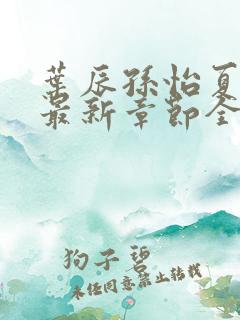 叶辰孙怡夏
最新章节全
狗子碧
未经同意禁止转载